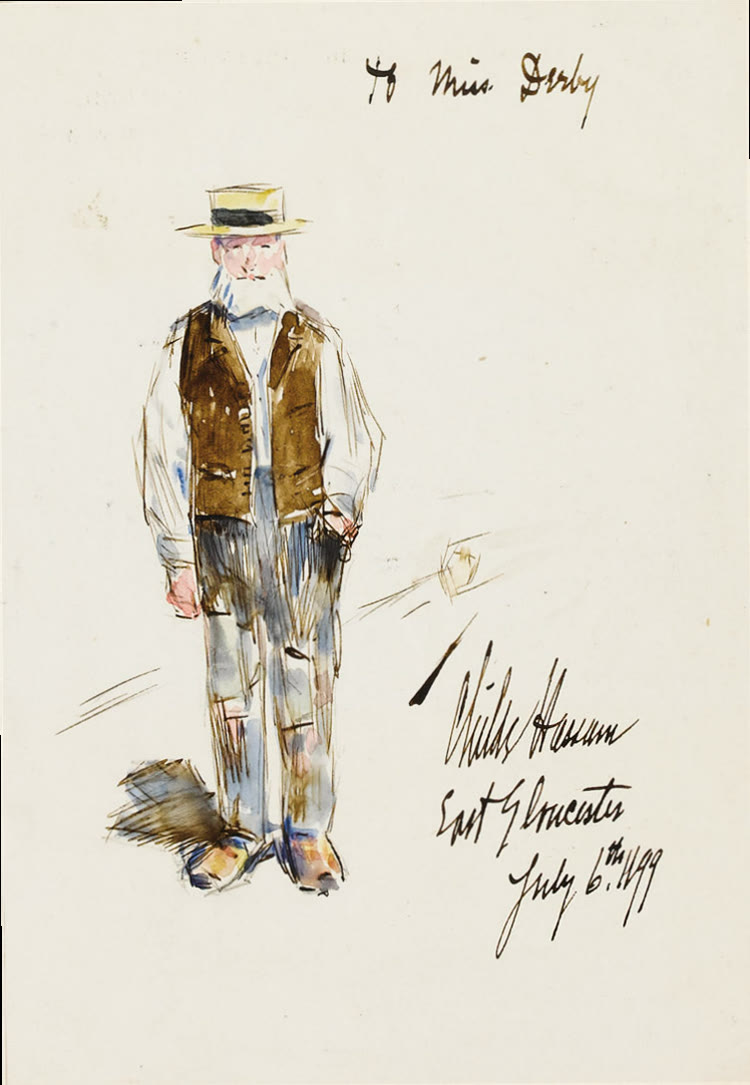 To Miss Derby
Childe Hassam
East Gloucester
July 6.th 1899